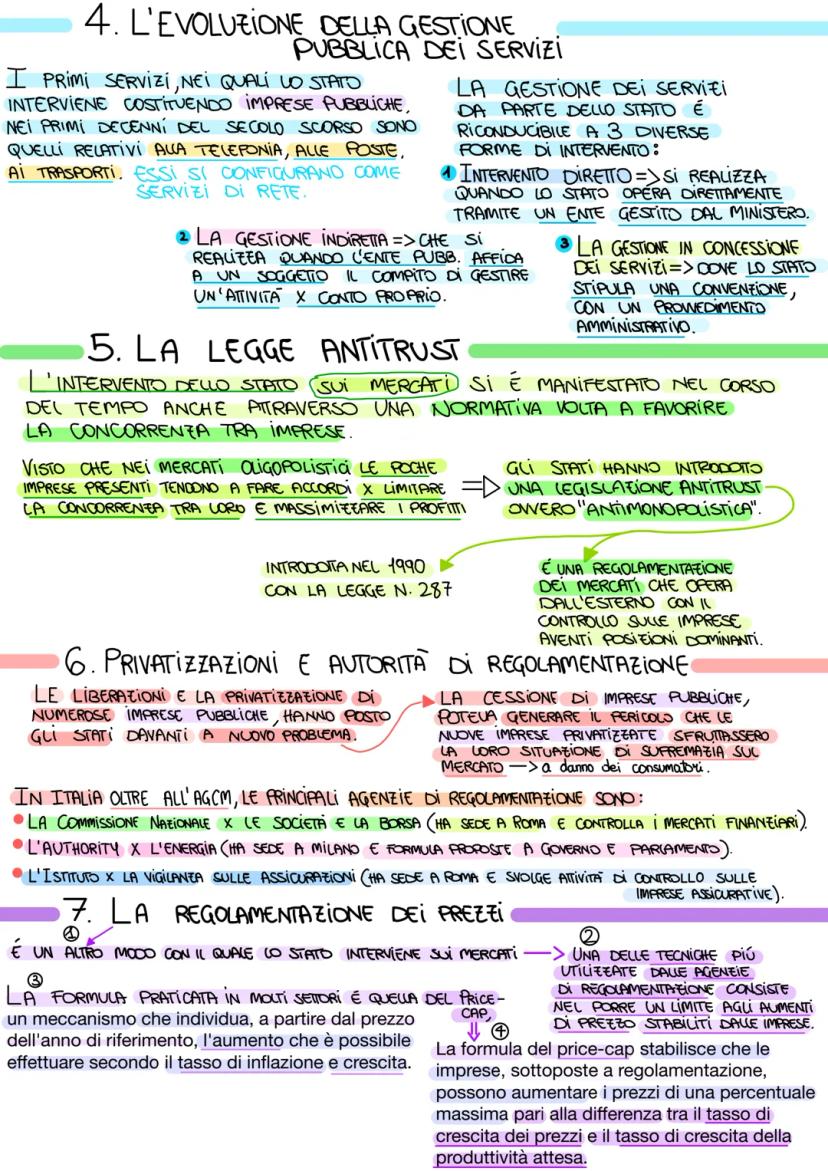 4. L'EVOLUZIONE DELLA GESTIONE
PUBBLICA DEI SERVIZI
I PRIMI SERVIZI, NEI QUALI LO STATO
INTERVIENE COSTITUENDO IMPRESE PUBBLICHE,
NEI PRIMI DECENNI DEL SECOLO SCORSO SONO
QUELLI RELATIVI ALLA TELEFONIA, ALLE POSTE,
AI TRASPORTI. ESSI SI CONFIGURANO COME
SERVIZI DI RETE.
LA GESTIONE DEI SERVIZI
DA PARTE DELLO STATO É
RICONDUCIBILE A 3 DIVERSE
FORME DI INTERVENTO:
1 INTERVENTO DIRETTO => SI REALIZZA
QUANDO LO STATO OPERA DIRETTAMENTE
TRAMITE UN ENTE GESTITO DAL MINISTERO.
2 LA GESTIONE INDIRETTA => CHE SI
REALIZZA QUANDO L'ENTE PUBB. AFFIDA
A UN SOGGETTO IL COMPITO DI GESTIRE
UN'ATTIVITÀ X CONTO PROPRIO.
3 LA GESTIONE IN CONCESSIONE
DEI SERVIZI => DOVE LO STATO
STIPULA UNA CONVENZIONE,
CON UN PROVVEDIMENTO
AMMINISTRATIVO.
5. LA LEGGE ANTITRUST
L'INTERVENTO DELLO STATO SUI MERCATI SI É MANIFESTATO NEL CORSO
DEL TEMPO ANCHE ATTRAVERSO UNA NORMATIVA VOLTA A FAVORIRE
LA CONCORRENZA TRA IMPRESE.
VISTO CHE NEI MERCATI OLIGOPOLISTICI LE POCHE
IMPRESE PRESENTI TENDONO A FARE ACCORDI X LIMITARE
LA CONCORRENZA TRA LORO E MASSIMIZZARE I PROFITTI
GLI STATI HANNO INTRODOTTO
UNA LEGISLAZIONE ANTITRUST
OVVERO "ANTIMONOPOLISTICA".
INTRODOTTA NEL 1990
CON LA LEGGE N. 287
É UNA REGOLAMENTAZIONE
DEI MERCATI CHE OPERA
DALL'ESTERNO CON IL
CONTROLLO SULLE IMPRESE
AVENTI POSIZIONI DOMINANTI.
6. PRIVATIZZAZIONI E AUTORITÀ DI REGOLAMENTAZIONE
LE LIBERAZIONI E LA PRIVATIZZAZIONE DI
NUMEROSE IMPRESE PUBBLICHE, HANNO POSTO
GLI STATI DAVANTI A NUOVO PROBLEMA.
LA CESSIONE DI IMPRESE PUBBLICHE,
POTEVA GENERARE IL PERICOLO CHE LE
NUOVE IMPRESE PRIVATIZZATE SFRUTTASSERO
LA LORO SITUAZIONE DI SUPREMAZIA SUL
MERCATO —> a danno dei consumatori.
IN ITALIA OLTRE ALL'AGCM, LE PRINCIPALI AGENZIE DI REGOLAMENTAZIONE SONO:
• LA COMMISSIONE NAZIONALE X LE SOCIETÀ E LA BORSA (HA SEDE A ROMA E CONTROLLA I MERCATI FINANZIARI).
• L'AUTHORITY X L'ENERGIA (HA SEDE A MILANO E FORMULA PROPOSTE A GOVERNO E PARLAMENTO).
• L'ISTITUTO X LA VIGILANZA SULLE ASSICURAZIONI (HA SEDE A ROMA E SVOLGE ATTIVITÀ DI CONTROLLO SULLE
IMPRESE ASSICURATIVE).
7. LA REGOLAMENTAZIONE DEI PREZZI
①
É UN ALTRO MODO CON IL QUALE LO STATO INTERVIENE SUI MERCATI —>
②
UNA DELLE TECNICHE PIÙ
UTILIZZATE DALLE AGENZIE
DI REGOLAMENTAZIONE CONSISTE
NEL PORRE UN LIMITE AGLI AUMENTI
DI PREZZO STABILITI DALLE IMPRESE.
③
LA FORMULA PRATICATA IN MOLTI SETTORI É QUELLA DEL PRICE-
CAP,
un meccanismo che individua, a partire dal prezzo
dell'anno di riferimento, l'aumento che è possibile
effettuare secondo il tasso di inflazione e crescita.
④
La formula del price-cap stabilisce che le
imprese, sottoposte a regolamentazione,
possono aumentare i prezzi di una percentuale
massima pari alla differenza tra il tasso di
crescita dei prezzi e il tasso di crescita della
produttività attesa.